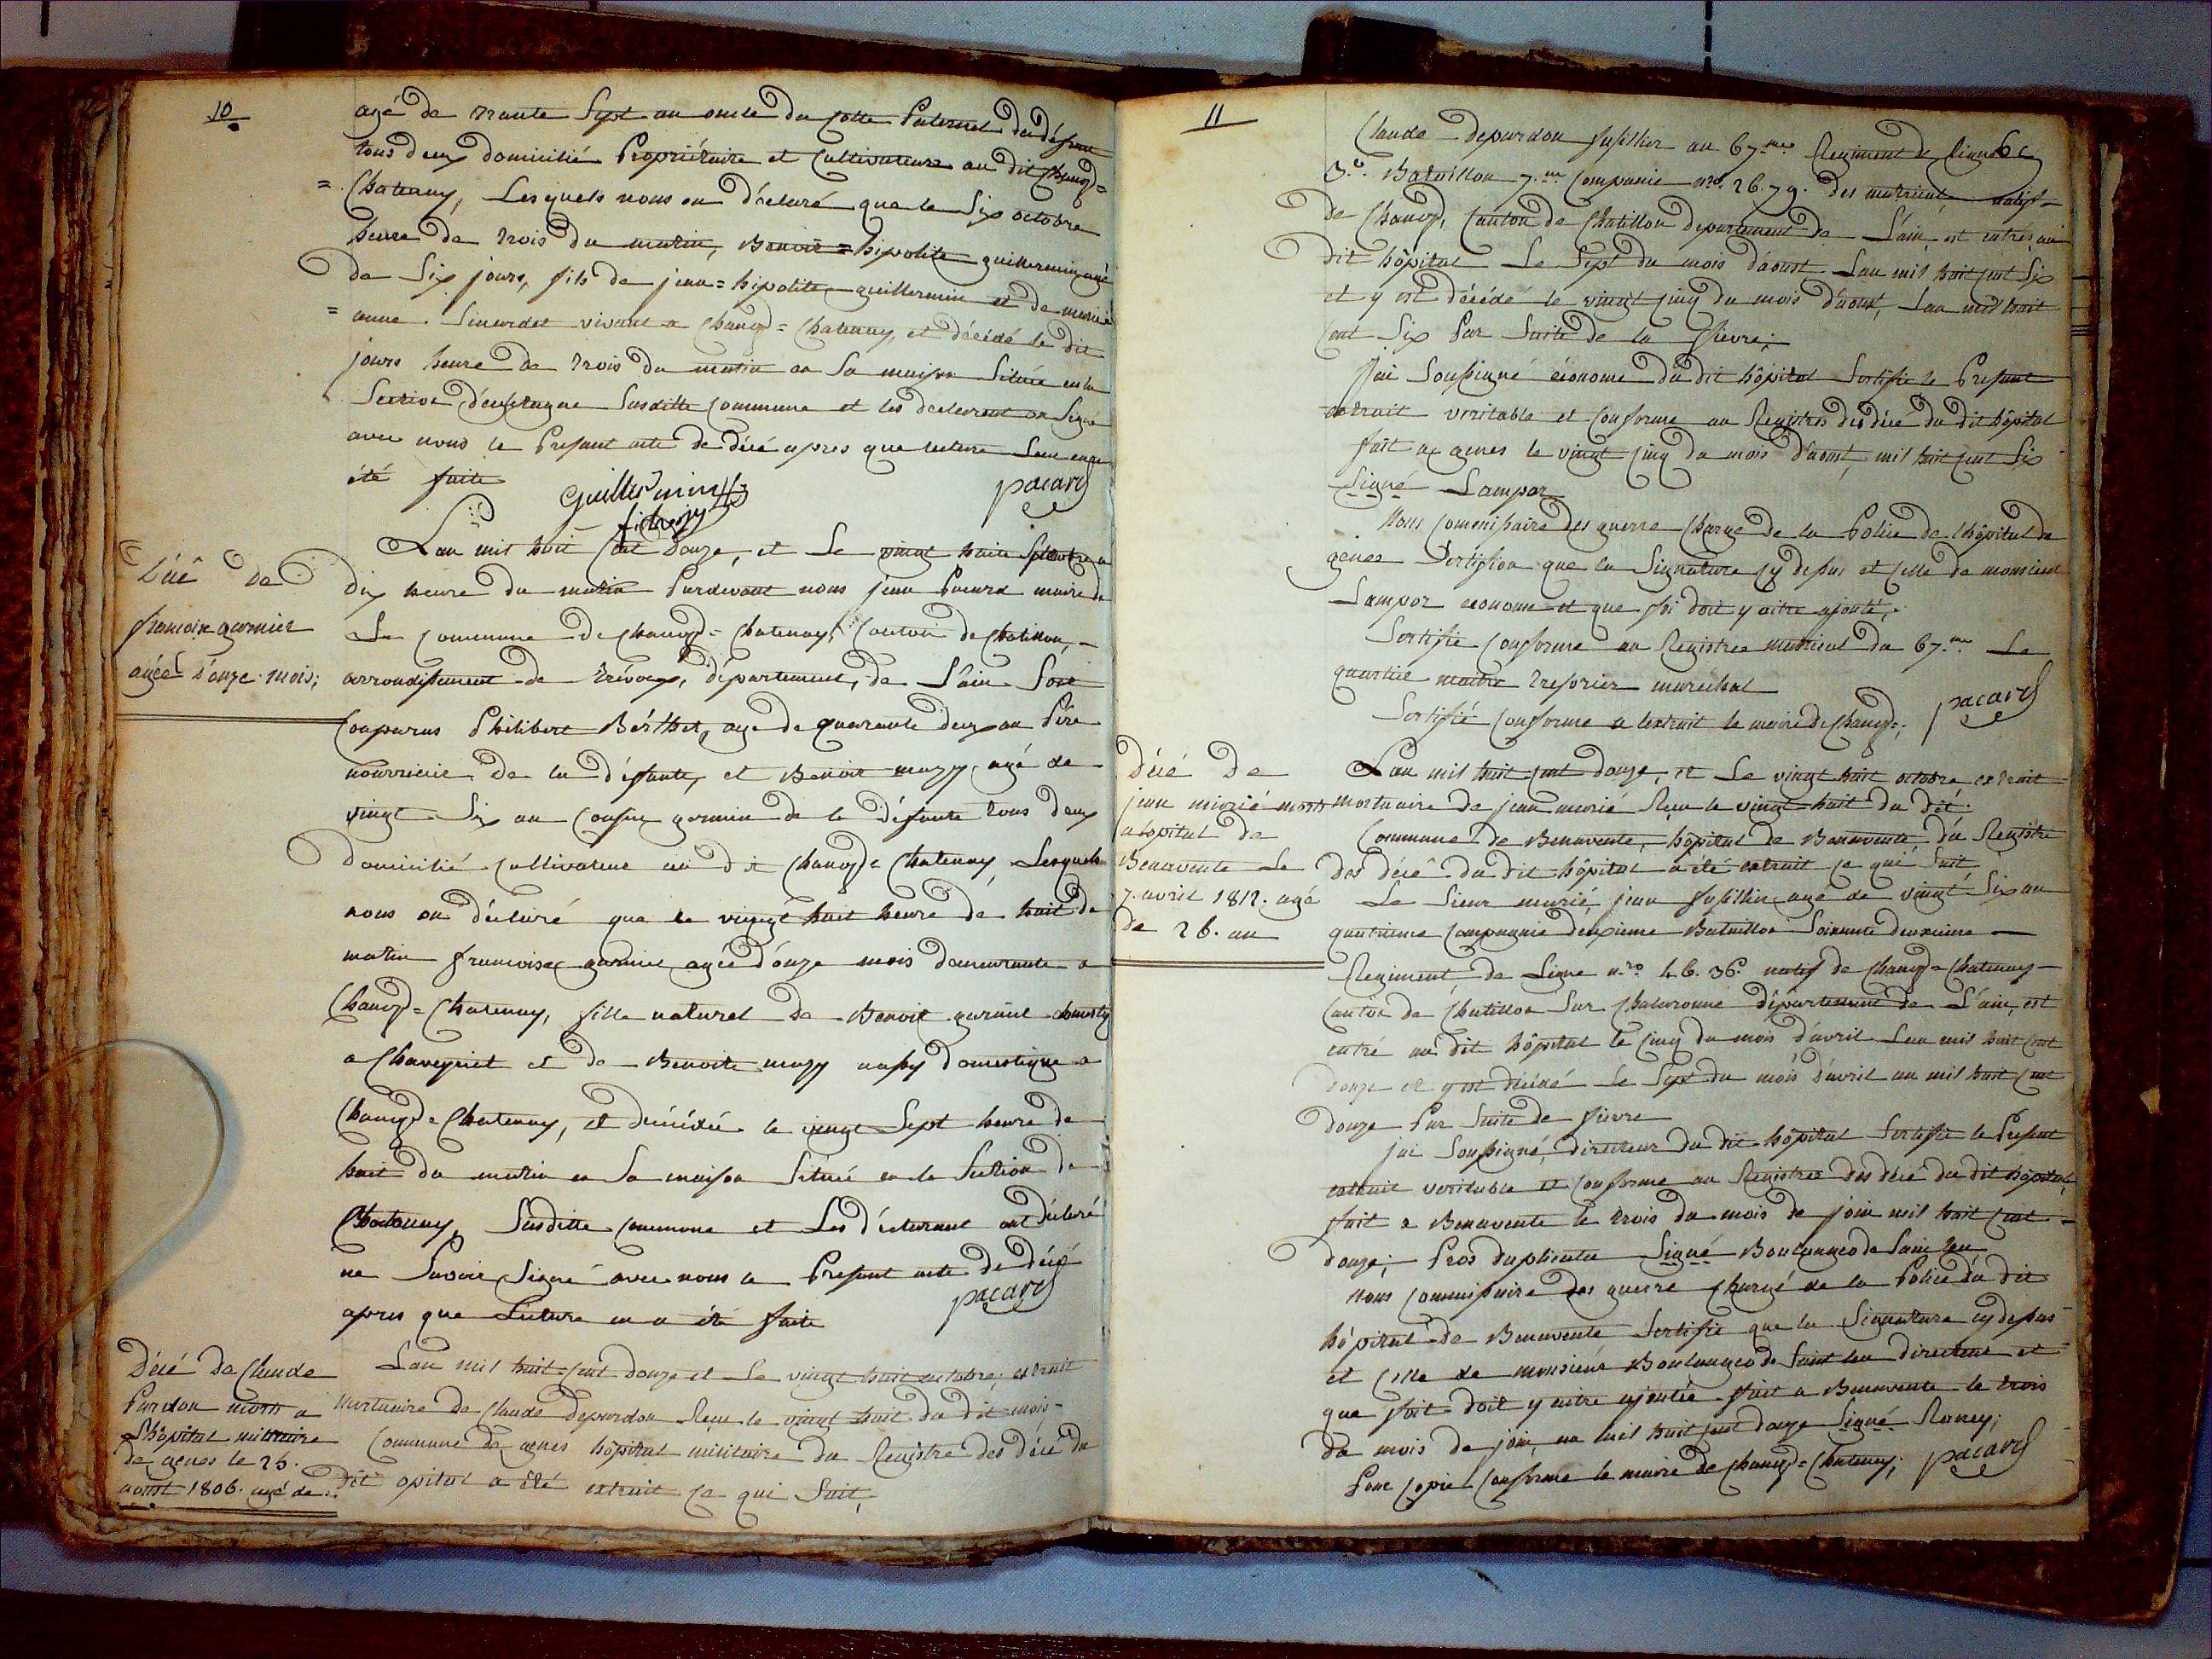 10
agé de trante Sept an oncle du cotte Paternel du défunt
tous deux domicilié Propriétaire et Cultivateurs au dit Chanoz=
=Chatenay, Lesquels nous on déclaré que le Six octobre
heure de trois du matin, Benoit=hipolite guillermin agé
de Six jours, fils de jean=hipolite guillermin et de marie
=anne vivant a Chanoz=Chatenay, et décédé le dit
jours heure de trois du matin en Sa maison Située en la
Section Susditte Commune et les declarent on Signé
avec nous le Presant acte de décé apres que lecture Leur en a
été faite
Guillermin pacard
Décé de
francoise garnier
agée d'onze mois;
Lan mil huit Cent douze, et Le vingt huit Septembre a
dix heure du matin Pardevant nous jean Pacard maire de
La Commune de Chanoz=Chatenay, Canton de Chatillon,
arrondissement de trévoux, département, de L'ain Sont
Comparus Philibert Berthet, age de quarante deux an Pére
nourricié de la défunte, et Benoit mazy agé de
vingt Six an Cousin germin de la Défunte tous deux
domicilié Cultivateur au dit Chanoz=Chatenay Lesquels
nous on déclaré que le vingt huit heure de huit de
matin francoise garnier agée d'onze mois demeurante a
Chanoz=Chatenay, fille naturel de Benoit garnié domestiq
a Chaveyriet et de Benoite mazy aussy domestique a
Chanoz=Chatenay, et décédée le vingt Sept heure de
huit du matin en Sa maison Située en la Section de
Chatenay, Susditte commune et Les déclarant ont déclaré
ne Savoir Signé avec nous le Present acte de décé
apres que Lecture en a été faite pacard
Décé de Claude
Pardon mort a
L'hôpital militaire
de genes le 25.
aoust 1806. agé de..
Lan mil huit Cent douze et Le vingt huit octobre; extrait
Mortuaire de Claude depardon Recu le vingt huit du dit mois
Commune de genes hôpital militaire du Registre des décé du
dit opital a été extrait Ce qui Suit,
11
Claude depardon fusillier au 67.me Regiment de Ligne
3.e Bataillon 7.me Companie n.ro 26.79. des matricule natif
de Chanoz, Canton de Chatillon departement de L'ain est entrés au
dit hôpital Le Sept du mois d'aoust Lan mil huit Cent Six
et y est décédé le vingt Cinq du mois d'aoust, Lan mil huit
Cent Six Par Suite de la fievre;
Jai Soussigné économe du dit hôpital Sertifie le Presant
extrait veritable et Conforme au Registres des décé du dit hôpital
fait a genes le vingt Cinq du mois d'aoust mil huit Cent Six
Signé Lampor
Nous Commissaire des guerre Chargé de la Police de L'hôpital de
genes Sertifion que la Signature Cy dessus et Celle de monsieur
Lampor econome et que foi doit y aitre ajouté,
Sertifié Conforme au Registre matricul du 67.me Le
quartié maitre tresorier marechal
Sertifié Conforme a l'extrait le maire de Chanoz=; pacard
Décé de
jean murié mort
a lopital de
Benavente Le
7. avril 1812. agé
de 26. an
Lan mil huit Cent douze, et Le vingt huit octobre extrait
mortuaire de jean murié Recu le vingt=huit du dit.
Commune de Benavente, hôpital de Benavente du Registre
des décé du dit hôpital a été extrait ce qui Suit
Le Sieur murié, jean fusillier agé de vingt Six an
quatrieme Compagnie deuxieme Bataillon Soixante deuxieme
Regiment de Ligne n.ro 46.36. natif de Chanoz=Chatenay
Canton de Chatillon Sur Chalaronne département de L'ain, est
entré au dit hôpital le Cinq du mois d'avril Lan mil huit Cent
douze et y est décédé Le Sept du mois d'avril an mil huit Cent
douze Par Suite de fievre
jai Soussigné, directeur du dit hôpital Sertifie le Presant
extrait veritable et Conforme au Registres des décé du dit hôpital,
fait a Benavente le trois du mois de join mil huit Cent
douze; Pros duplicata Signé Boulangeo de Saint leu
Nous Commissaire des guerre Chargé de la Police du dit
hôpital de Benavente Sertifie que la Signature cy dessus
et Celle de monsieur Boulangeo de Saint leu directeur et
que foit doit y aitre ajoutée fait a Benavente le trois
du mois de join, an mil huit Cent douze Signé Roney;
Pour Copie Conforme le maire de Chanoz=Chatenay; pacard